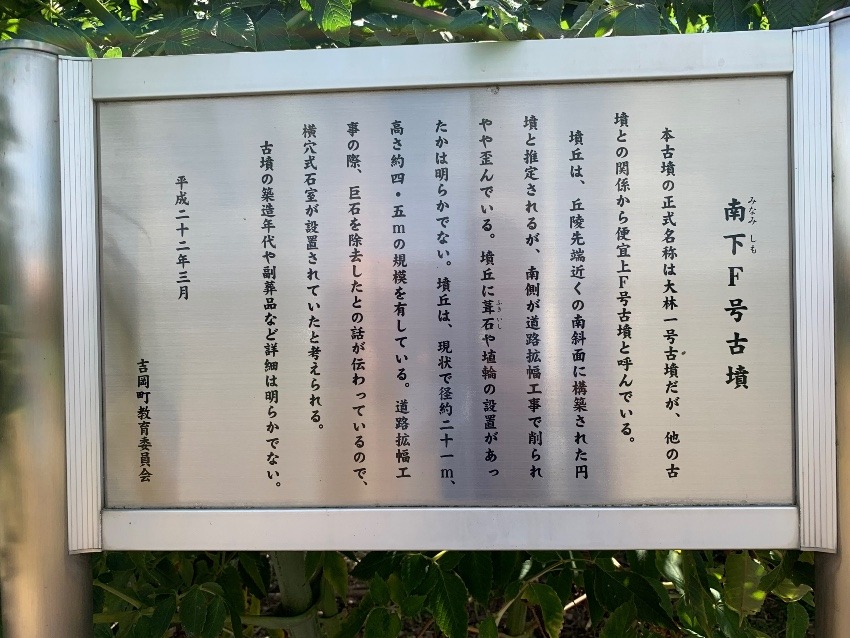 南下F号古墳
みなみ しも
本古墳の正式名称は大林一号古墳だが、他の古
墳との関係から便宜上F号古墳と呼んでいる。
墳丘は、丘陵先端近くの南斜面に構築された円
墳と推定されるが、南側が道路拡幅工事で削られ
やや歪んでいる。墳丘に葺石や埴輪の設置があっ
ふきいし
たかは明らかでない。墳丘は、現状で径約二十一m、
高さ約四・五mの規模を有している。道路拡幅工
事の際、巨石を除去したとの話が伝わっているので、
横穴式石室が設置されていたと考えられる。
古墳の築造年代や副葬品など詳細は明らかでない。
平成二十二年三月
吉岡町教育委員会